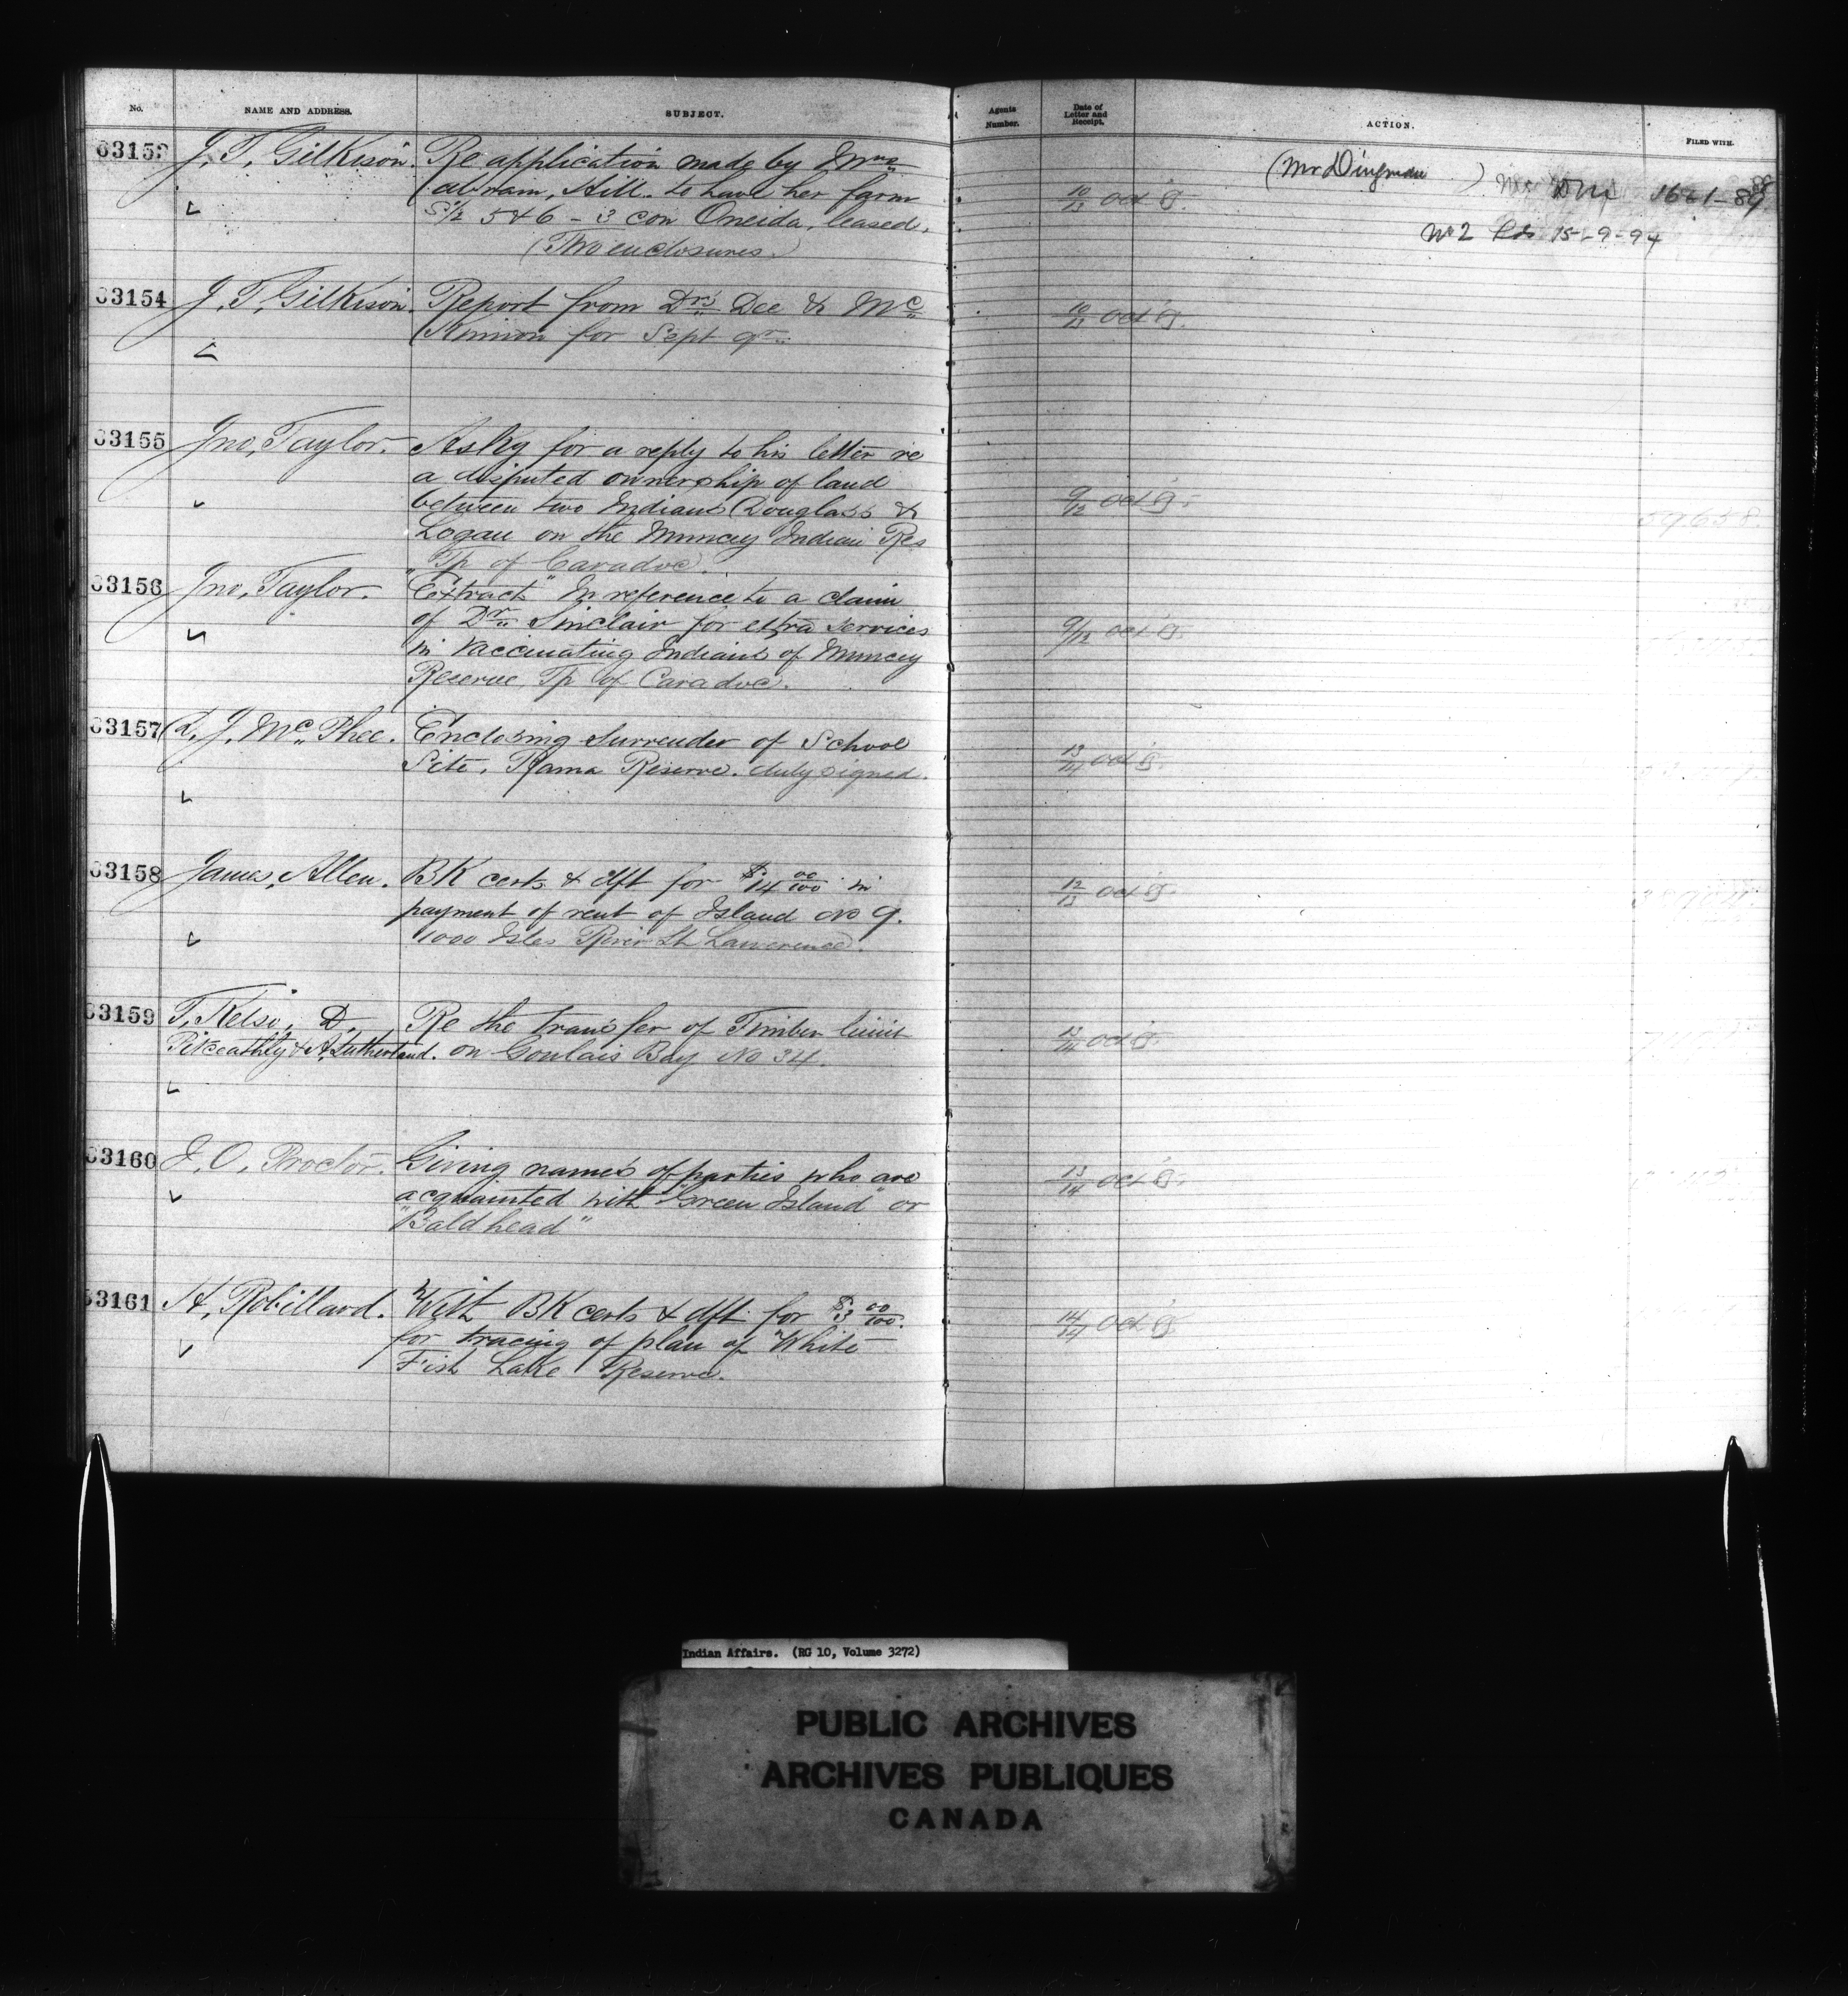 No. NAME AND ADDRESS. SUBJECT. Agents Number. Date of Letter and Receipt. ACTION. FILED WITH.
63153 J. T. Gilkison. Re application made by Mrs
Abram, Hill. to have her farm
S 1/2 5 & 6 - 3 con Oneida, leased.
(Two enclosures.)
10/13 Oct
(Mr Dingman )
No 2 15-9-94
63154 J. T. Gilkison. Report from Drs Dee & Mc
Kinnon for Sept qr
10/13 Oct
63155 Jno, Taylor. Askg for a reply to his letter re
a disputed ownership of land
between two Indians (Douglass &
Logan on the Muncey Indian Res
Tp of Caradoc.
9/12 Oct
59658.
63156 Jno, Taylor. "Extract" In reference to a claim
of Dr Sinclair for extra services
in vaccinating Indians of Muncey
Reserve, Tp of Caradoc.
9/12 Oct
63157 D. J. McPhee. Enclosing surrender of School
Site, Rama Reserve. duly signed.
13/14 Oct
63158 James, Allen. BK certs & dft for $14 00/100 in
payment of rent of Island No 9.
1000 Isles River St Lawrence.
12/13 Oct
63159 T, Kelso, D,
Pitceathly & A, Sutherland.
Re the transfer of Timber limit
on Goulais Bay No 34.
13/14 Oct
63160 J. O, Proctor. Giving names of parties who are
acquainted with "Green Island" or
"Baldhead"
13/14 Oct
63161 H, Robillard. With BK certs & dft for $3 00/100.
for tracing of plan of White
Fish Lake Reserve.
14/14 Oct
Indian Affairs. (RG 10, Volume 3272)
PUBLIC ARCHIVES
ARCHIVES PUBLIQUES
CANADA